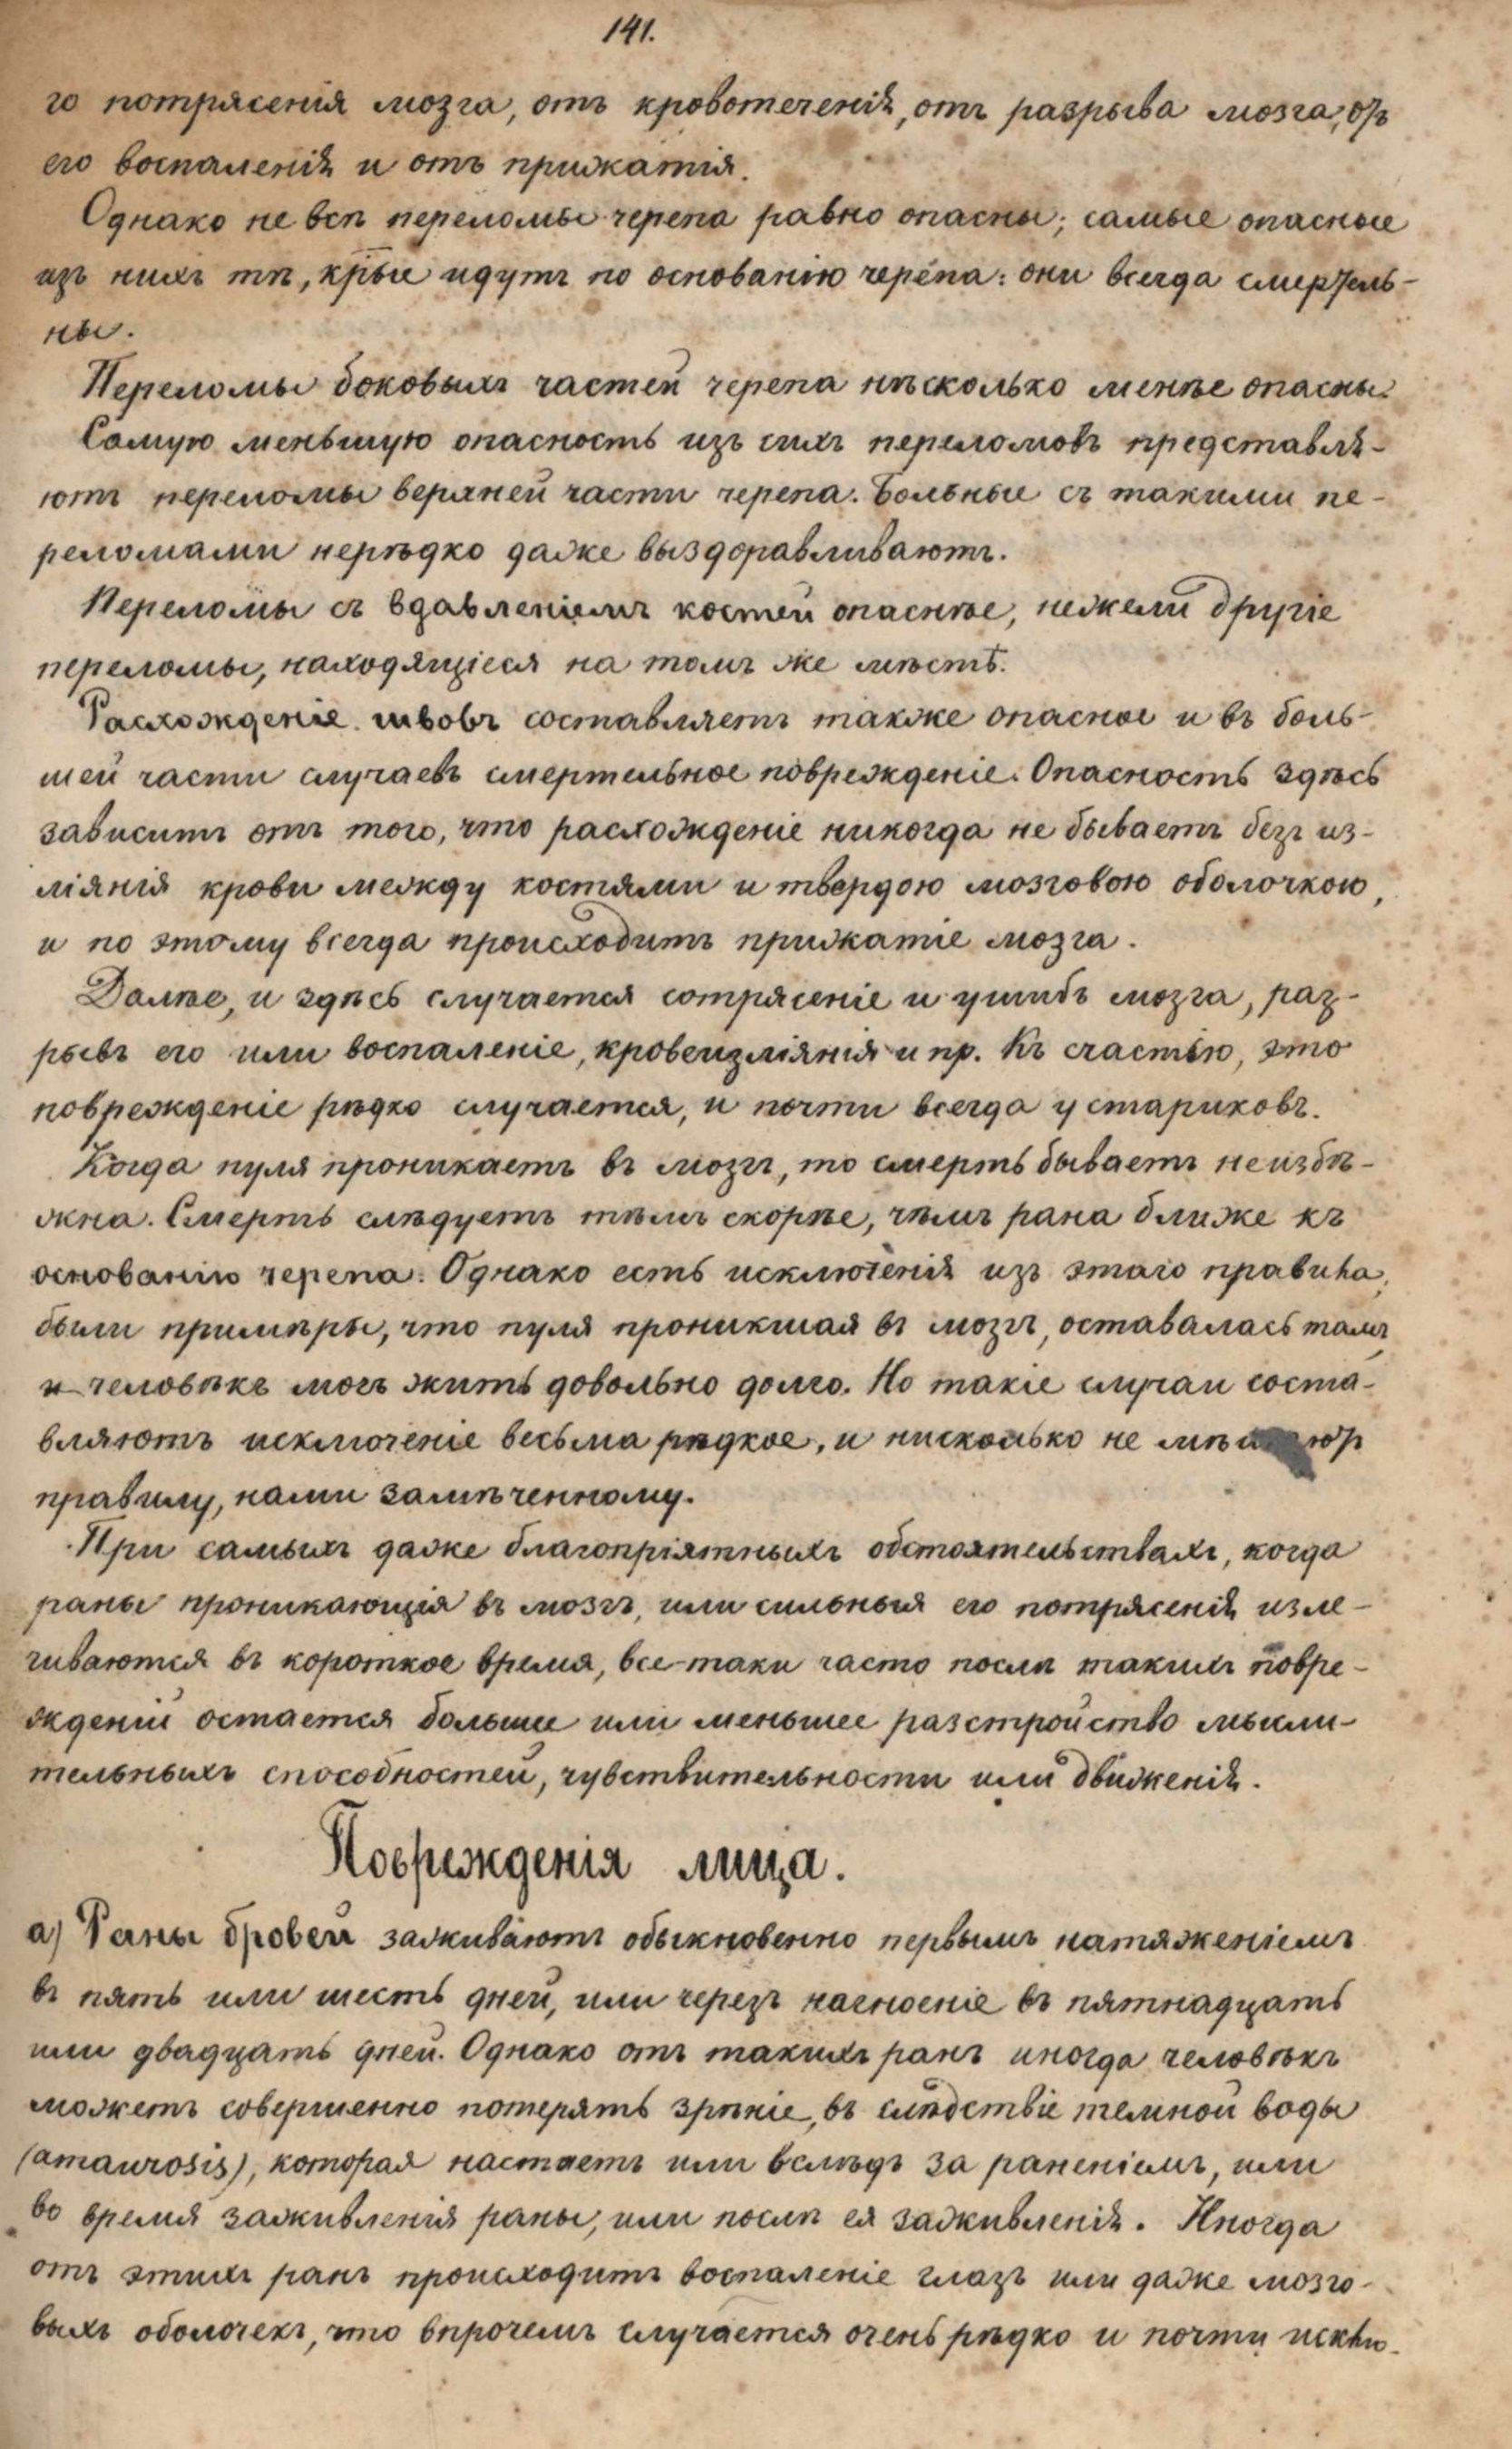 141.
го потрясенія мозга, отъ кровотеченія, отъ разрыва мозга, отъ
его воспаленія и отъ прижатія.
Однако не всѣ переломы черепа равно опасны; самые опасные
изъ нихъ тѣ, крые идутъ по основанію черепа: они всегда смертель-
ны.
Переломы боковыхъ частей черепа нѣсколько менѣе опасны.
Самую меньшую опасность изъ сихъ переломовъ представля-
ютъ переломы верхней части черепа. Больные съ такими пе-
реломами нерѣдко даже выздоравливаютъ.
Переломы съ вдавленіемъ костей опаснѣе, нежели другіе
переломы, находящіеся на томъ же мѣстѣ.
Расхожденіе швовъ составляетъ также опасное и въ боль-
шей части случаевъ смертельное поврежденіе. Опасность здѣсь
зависитъ отъ того, что расхожденіе никогда не бываетъ безъ из-
ліянія крови между костями и твердою мозговою оболочкою,
и по этому всегда происходитъ прижатіе мозга.
Далѣе, и здѣсь случается сотрясеніе и ушибъ мозга, раз-
рывъ его или воспаленіе, кровеизліянія и пр. Къ счастію, это
поврежденіе рѣдко случается, и почти всегда у стариковъ.
Когда пуля проникаетъ въ мозгъ, то смерть бываетъ неизбѣ-
жна. Смерть слѣдуетъ тѣмъ скорѣе, чѣмъ рана ближе къ
основанію черепа. Однако есть исключенія изъ этаго правила;
были примѣры, что пуля проникшая въ мозгъ, оставалась тамъ,
и человѣкъ могъ жить довольно долго. Но такіе случаи соста-
вляютъ исключеніе весьма рѣдкое, и нисколько не
правилу, нами замѣченному.
При самыхъ даже благопріятныхъ обстоятельствахъ, когда
раны проникающія въ мозгъ, или сильныя его потрясенія изле-
чиваются въ короткое время, все-таки часто послѣ такихъ повре-
жденій остается большее или меньшее разстройство мысли-
тельныхъ способностей, чувствительности или движенія.
Поврежденія лица.
а) Раны бровей заживаютъ обыкновенно первымъ натяженіемъ
въ пять или шесть дней, или черезъ нагноеніе въ пятнадцать
или двадцать дней. Однако отъ такихъ ранъ иногда человѣкъ
можетъ совершенно потерять зрѣніе, въ слѣдствіе темной воды
(amaurosis), которая настаетъ или вслѣдъ за раненіемъ, или
во время заживленія раны, или послѣ ея заживленія. Иногда
отъ этихъ ранъ происходитъ воспаленіе глазъ или даже мозго-
выхъ оболочекъ, что впрочемъ случается очень рѣдко и почти исклю-